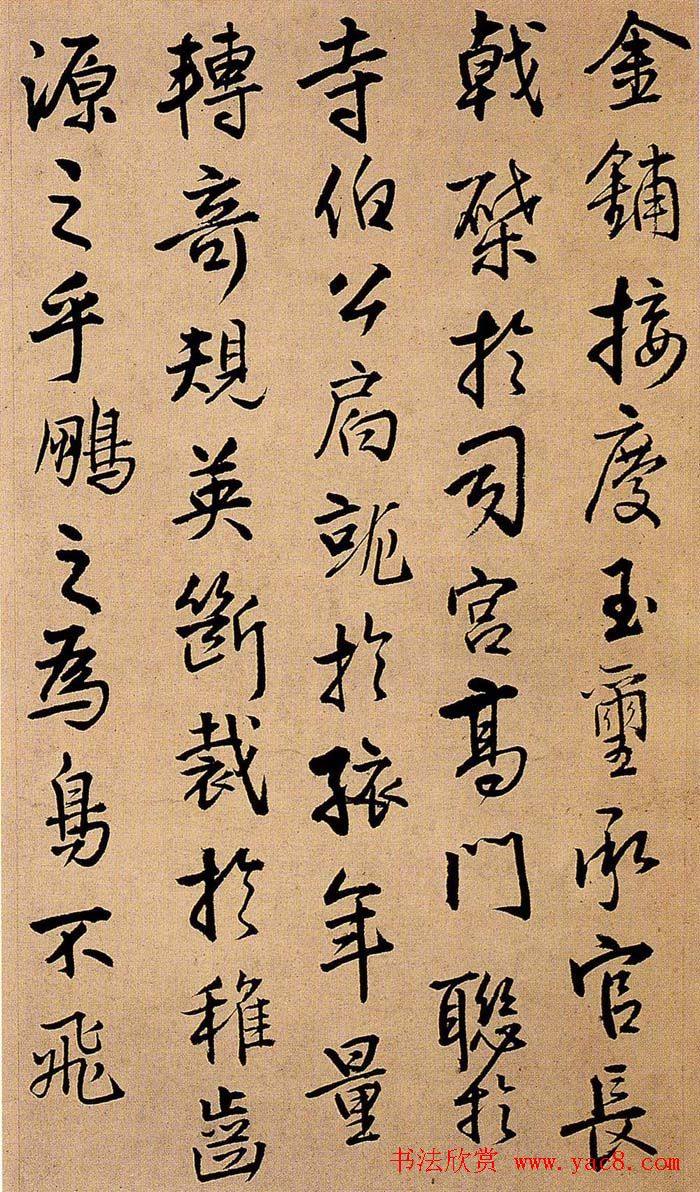 金鋪接慶玉璽承官長
戟槃於司宮高門聯於
寺伯公肩就於孩年量
轉奇規英斷裁於稚齒
源之乎鵬之為鳥不飛
书法欣赏 www.yac8.com